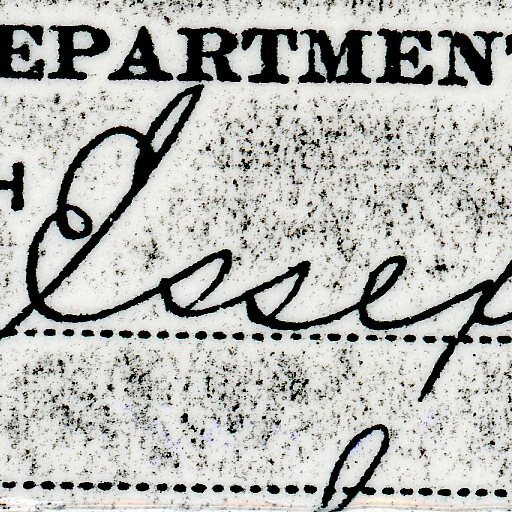 EPARTMENT
H
Essex